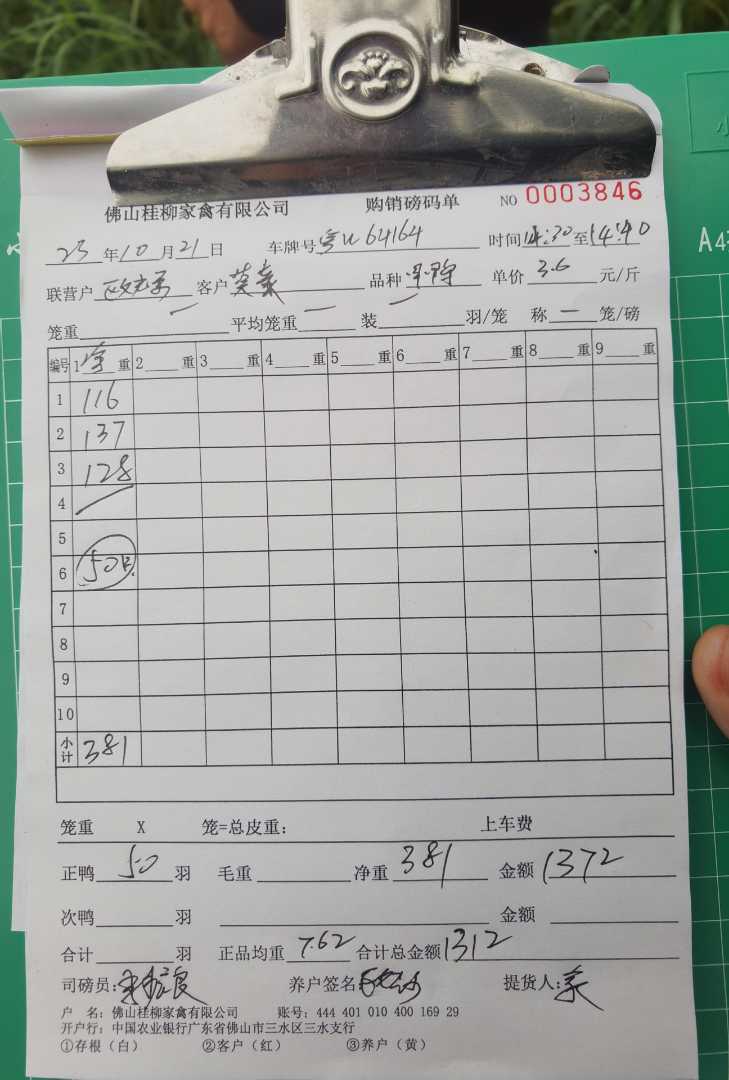 佛山桂柳家禽有限公司 购销磅码单 NO 0003846
23 年 10 月 21 日 车牌号 粤U 64164 时间 14:30 至 14:40
联营户 客户 品种 单价 3.6 元/斤
笼重 平均笼重 一 装 一 羽/笼 称 一 笼/磅
编号 1 重 2 重 3 重 4 重 5 重 6 重 7 重 8 重 9 重
1 116
2 137
3 128
4
5
6 50只
7
8
9
10
小计 381
笼重 X 笼=总皮重: 上车费
正鸭 50 羽 毛重 净重 381 金额 1372
次鸭 羽 金额
合计 羽 正品均重 7.62 合计总金额 1312
司磅员: 养户签名 提货人:
户 名: 佛山桂柳家禽有限公司 账号: 444 401 010 400 169 29
开户行: 中国农业银行广东省佛山市三水区三水支行
①存根(白) ②客户(红) ③养户(黄)
A4